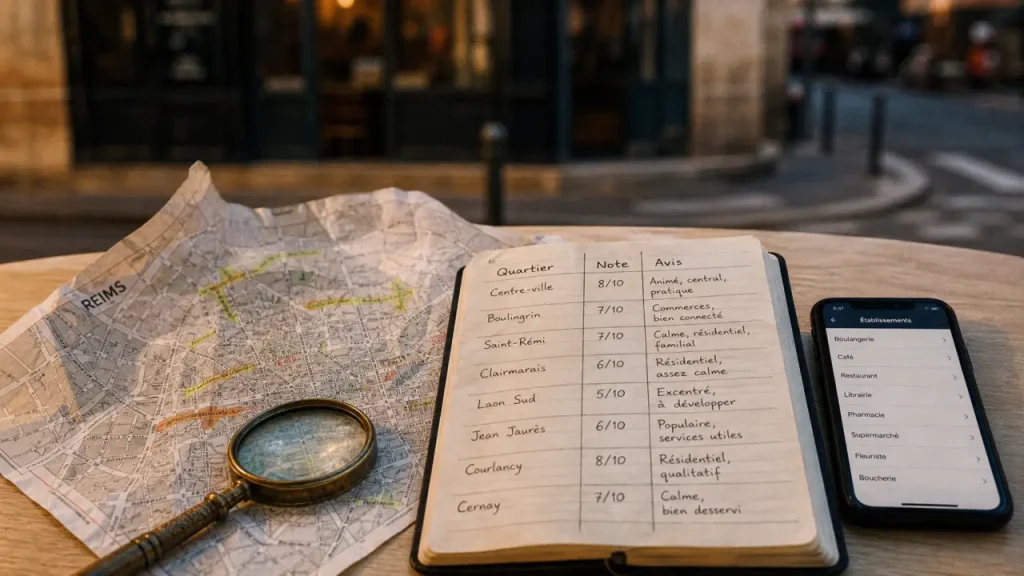 REIMS
Quartier Note Avis
Centre-ville 8/10 Animé, central,
pratique
Boulingrin 7/10 Commerces,
bien connecté
Saint-Rémi 7/10 Calme, résidentiel,
familial
Clairmarais 6/10 Résidentiel,
assez calme
Laon Sud 5/10 Excentré,
à développer
Jean Jaurès 6/10 Populaire,
services utiles
Courlancy 8/10 Résidentiel,
qualitatif
Cernay 7/10 Calme,
bien desservi
Établissements
Boulangerie
Café
Restaurant
Librairie
Pharmacie
Supermarché
Fleuriste
Boucherie